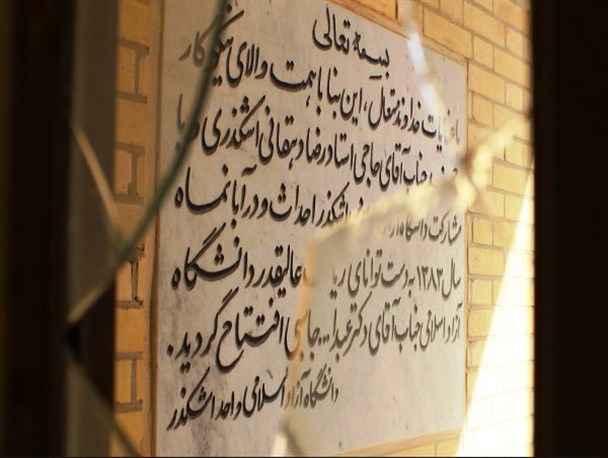 بسمه تعالی
با عنایات خداوند متعال، این بنا با همت والای نیکوکار
جناب آقای حاجی استاد رضا دهقانی اشکذری و با
مشارکت دانشگاه آزاد اشکذر احداث و در آبانماه
سال ۱۳۸۳ به دست توانای عالیقدر دانشگاه
آزاد اسلامی جناب آقای دکتر عبدا... جاسبی افتتاح گردید.
دانشگاه آزاد اسلامی واحد اشکذر